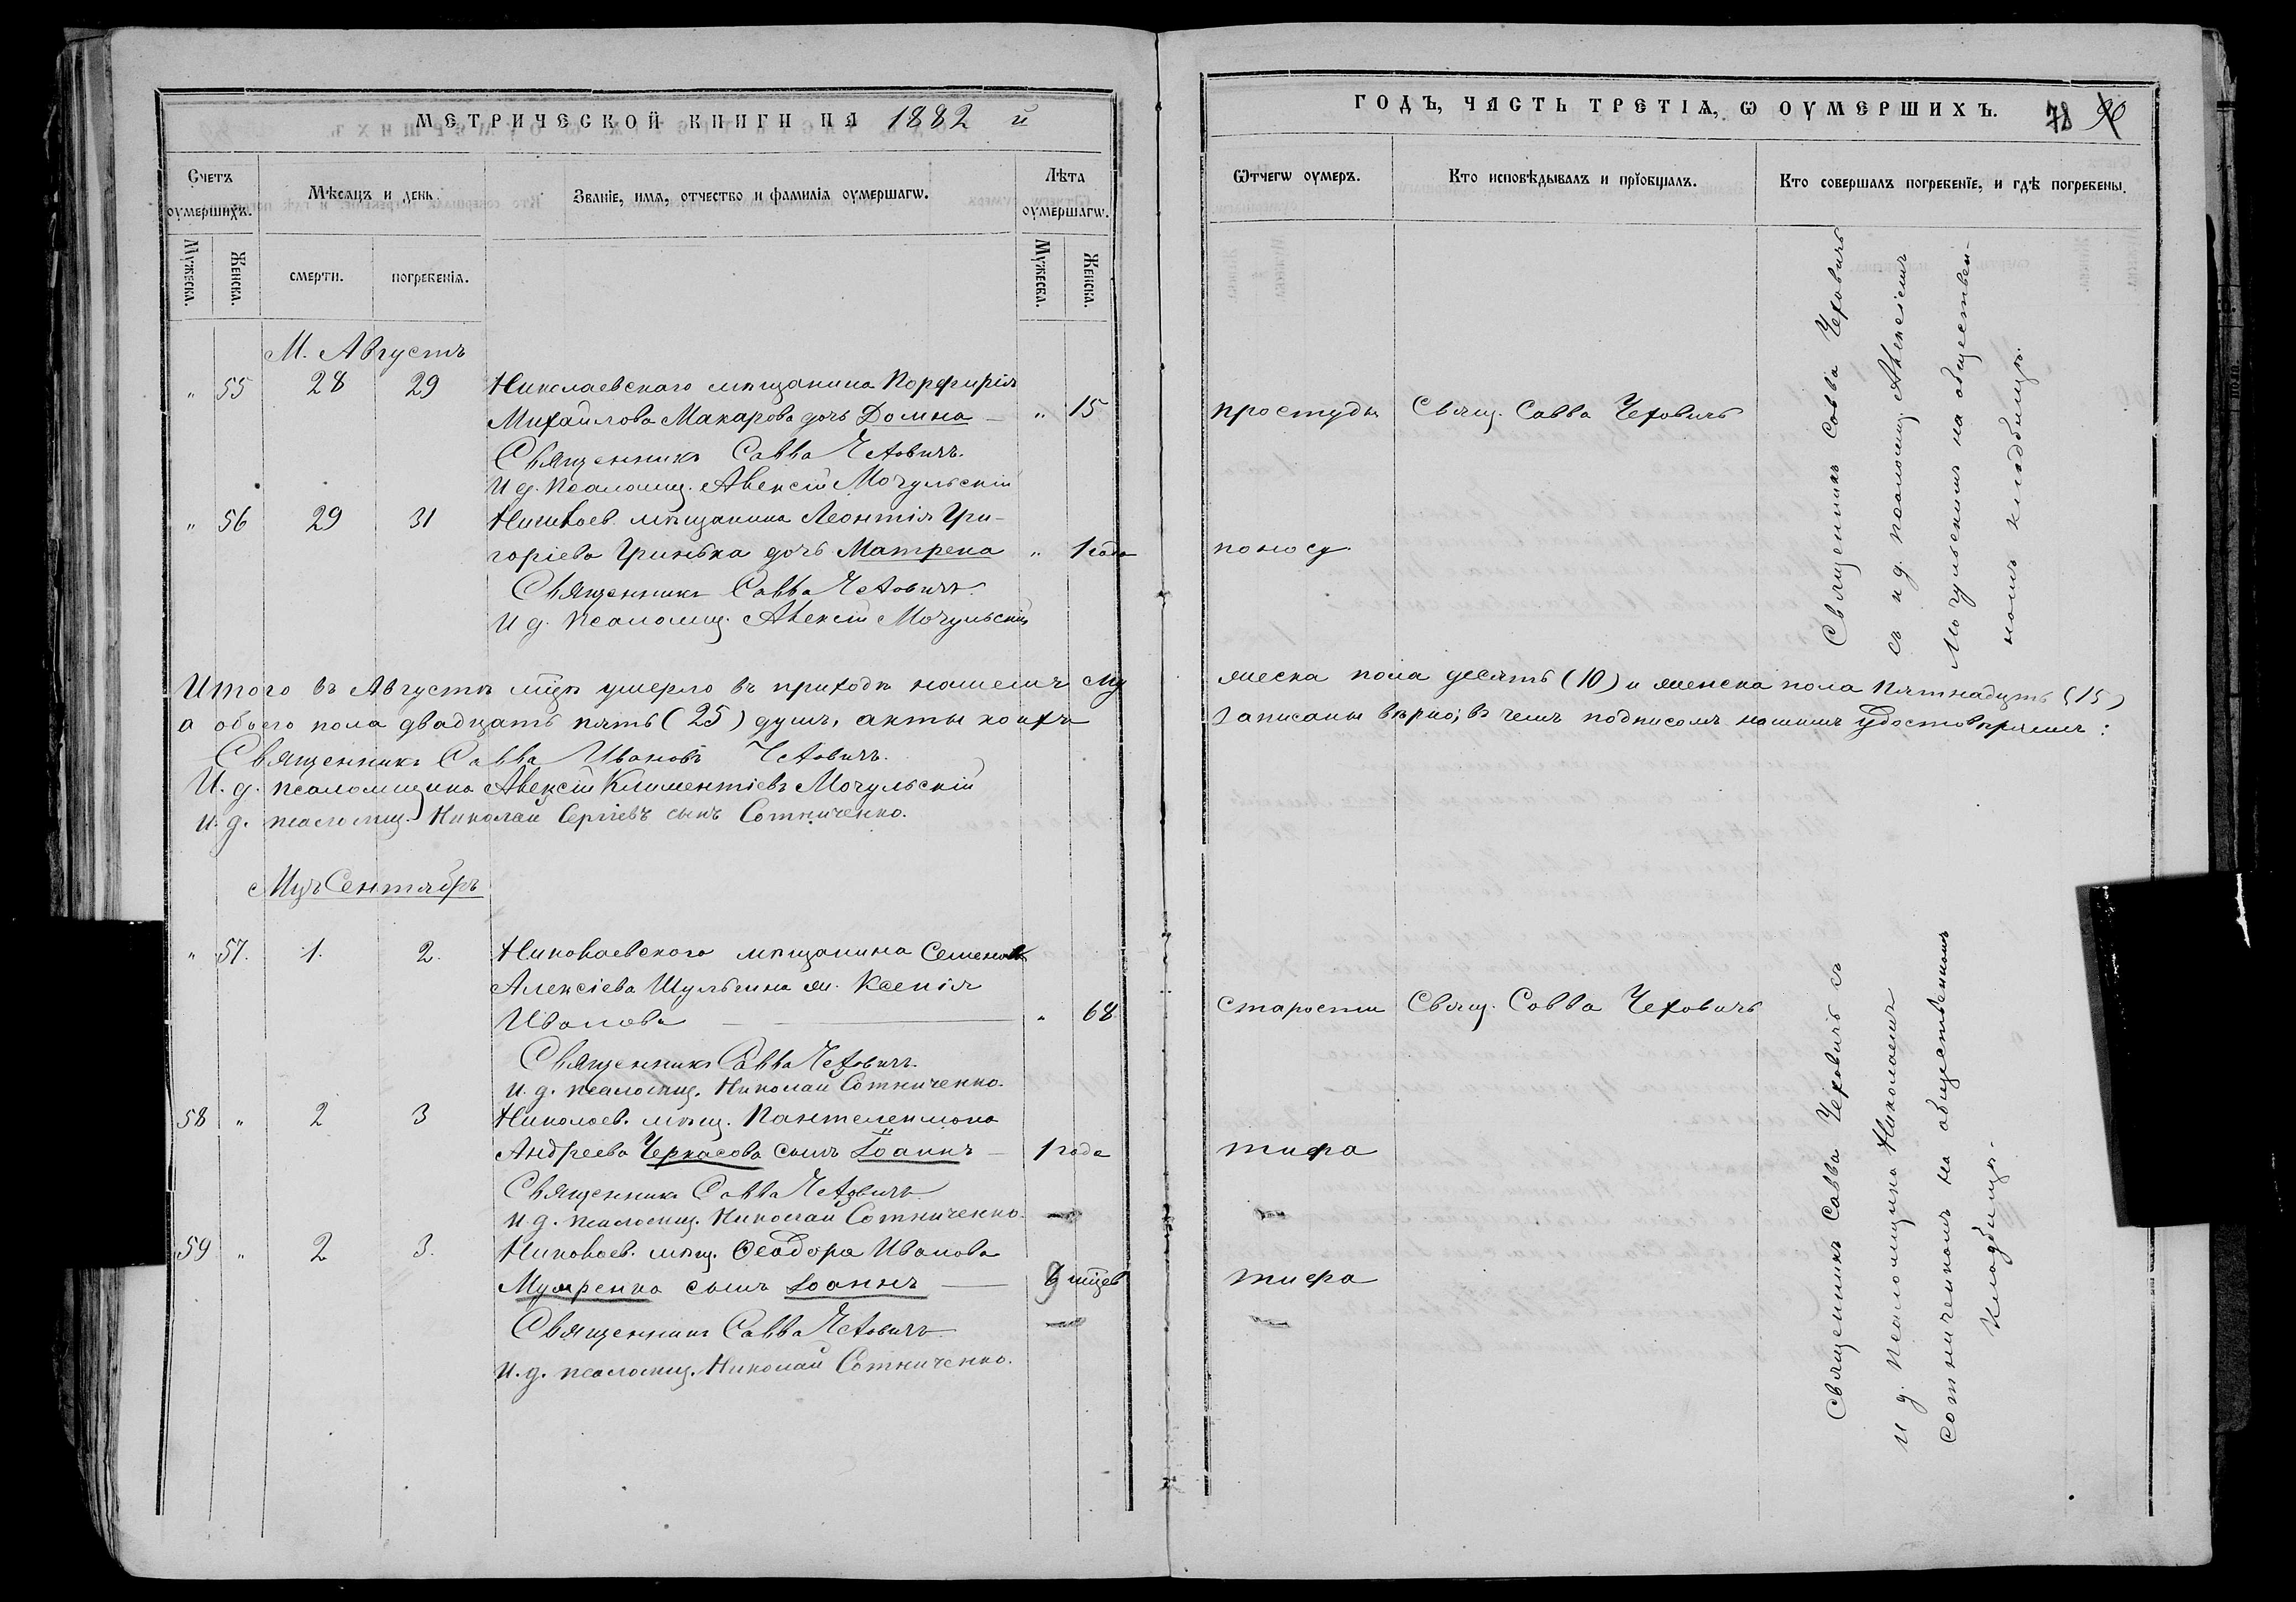 МЕТРИЧЕСКОЙ КНИГИ НА 1882 й
Счетъ оумершихъ.
Мѣсяцъ и день.
Званіе, имя, отчество и фамилія оумершагѡ.
Лѣта оумершагѡ.
Мужеска.
Женска.
смерти.
погребенія.
Мужеска.
Женска.
М. Августъ
" 55 28 29 Николаевскаго мѣщанина Порфирія
Михайлова Макарова дочь Домна — " 15
Священникъ Савва Чеховичъ.
И д. Псаломщ. Алексій Мочульскій
" 56 29 31 Николаев. мѣщанина Леонтія Гри-
горіева Гринька дочь Матрена " 1 года
Священникъ Савва Чеховичъ.
И д. Псаломщ. Алексій Мочульскій
Итого въ Августѣ мцѣ умерло въ приходѣ нашемъ му
а обоего пола двадцать пять (25) душъ, акты коихъ
Священникъ Савва Ивановъ Чеховичъ.
И. д. псаломщика Алексій Климентіевъ Мочульскій
и. д. псаломщ. Николай Сергіевъ сынъ Сотниченко.
Мцъ Сентябрь
" 57. 1. 2. Николаевского мѣщанина Семена
Алексіева Шульгина ж. Ксенія
Иванова — " 68
Священникъ Савва Чеховичъ.
и. д. псаломщ. Николай Сотниченко.
58 " 2 3 Николаев. мѣщ. Пантелеимона
Андреева Черкасова сынъ Іоаннъ — 1 года
Священникъ Савва Чеховичъ
и. д. псаломщ. Николай Сотниченко.
59 " 2 3. Николаев. мѣщ. Ѳеодора Иванова
сынъ Іоаннъ — 9 мцев
Священникъ Савва Чеховичъ
и. д. псаломщ. Николай Сотниченко.
ГОДЪ, ЧАСТЬ ТРЕТІЯ, Ѡ ОУМЕРШИХЪ. 78 90
Ѿтчегѡ оумеръ.
Кто исповѣдывалъ и пріобщалъ.
Кто совершалъ погребеніе, и гдѣ погребены.
простуды Свящ. Савва Чеховичъ
поносу
Священникъ Савва Чеховичъ
съ и д. псаломщ. Алексіемъ
Мочульскимъ на обществен-
номъ кладбищѣ.
жеска пола десять (10) и женска пола Пятнадцать (15)
записаны вѣрно; въ чемъ подписомъ нашимъ удостовѣряемъ:
старости Свящ. Савва Чеховичъ
тифа
тифа
Священникъ Савва Чеховичъ съ
и д. Псаломщика Николаемъ
Сотниченкомъ на общественномъ
кладбищѣ.